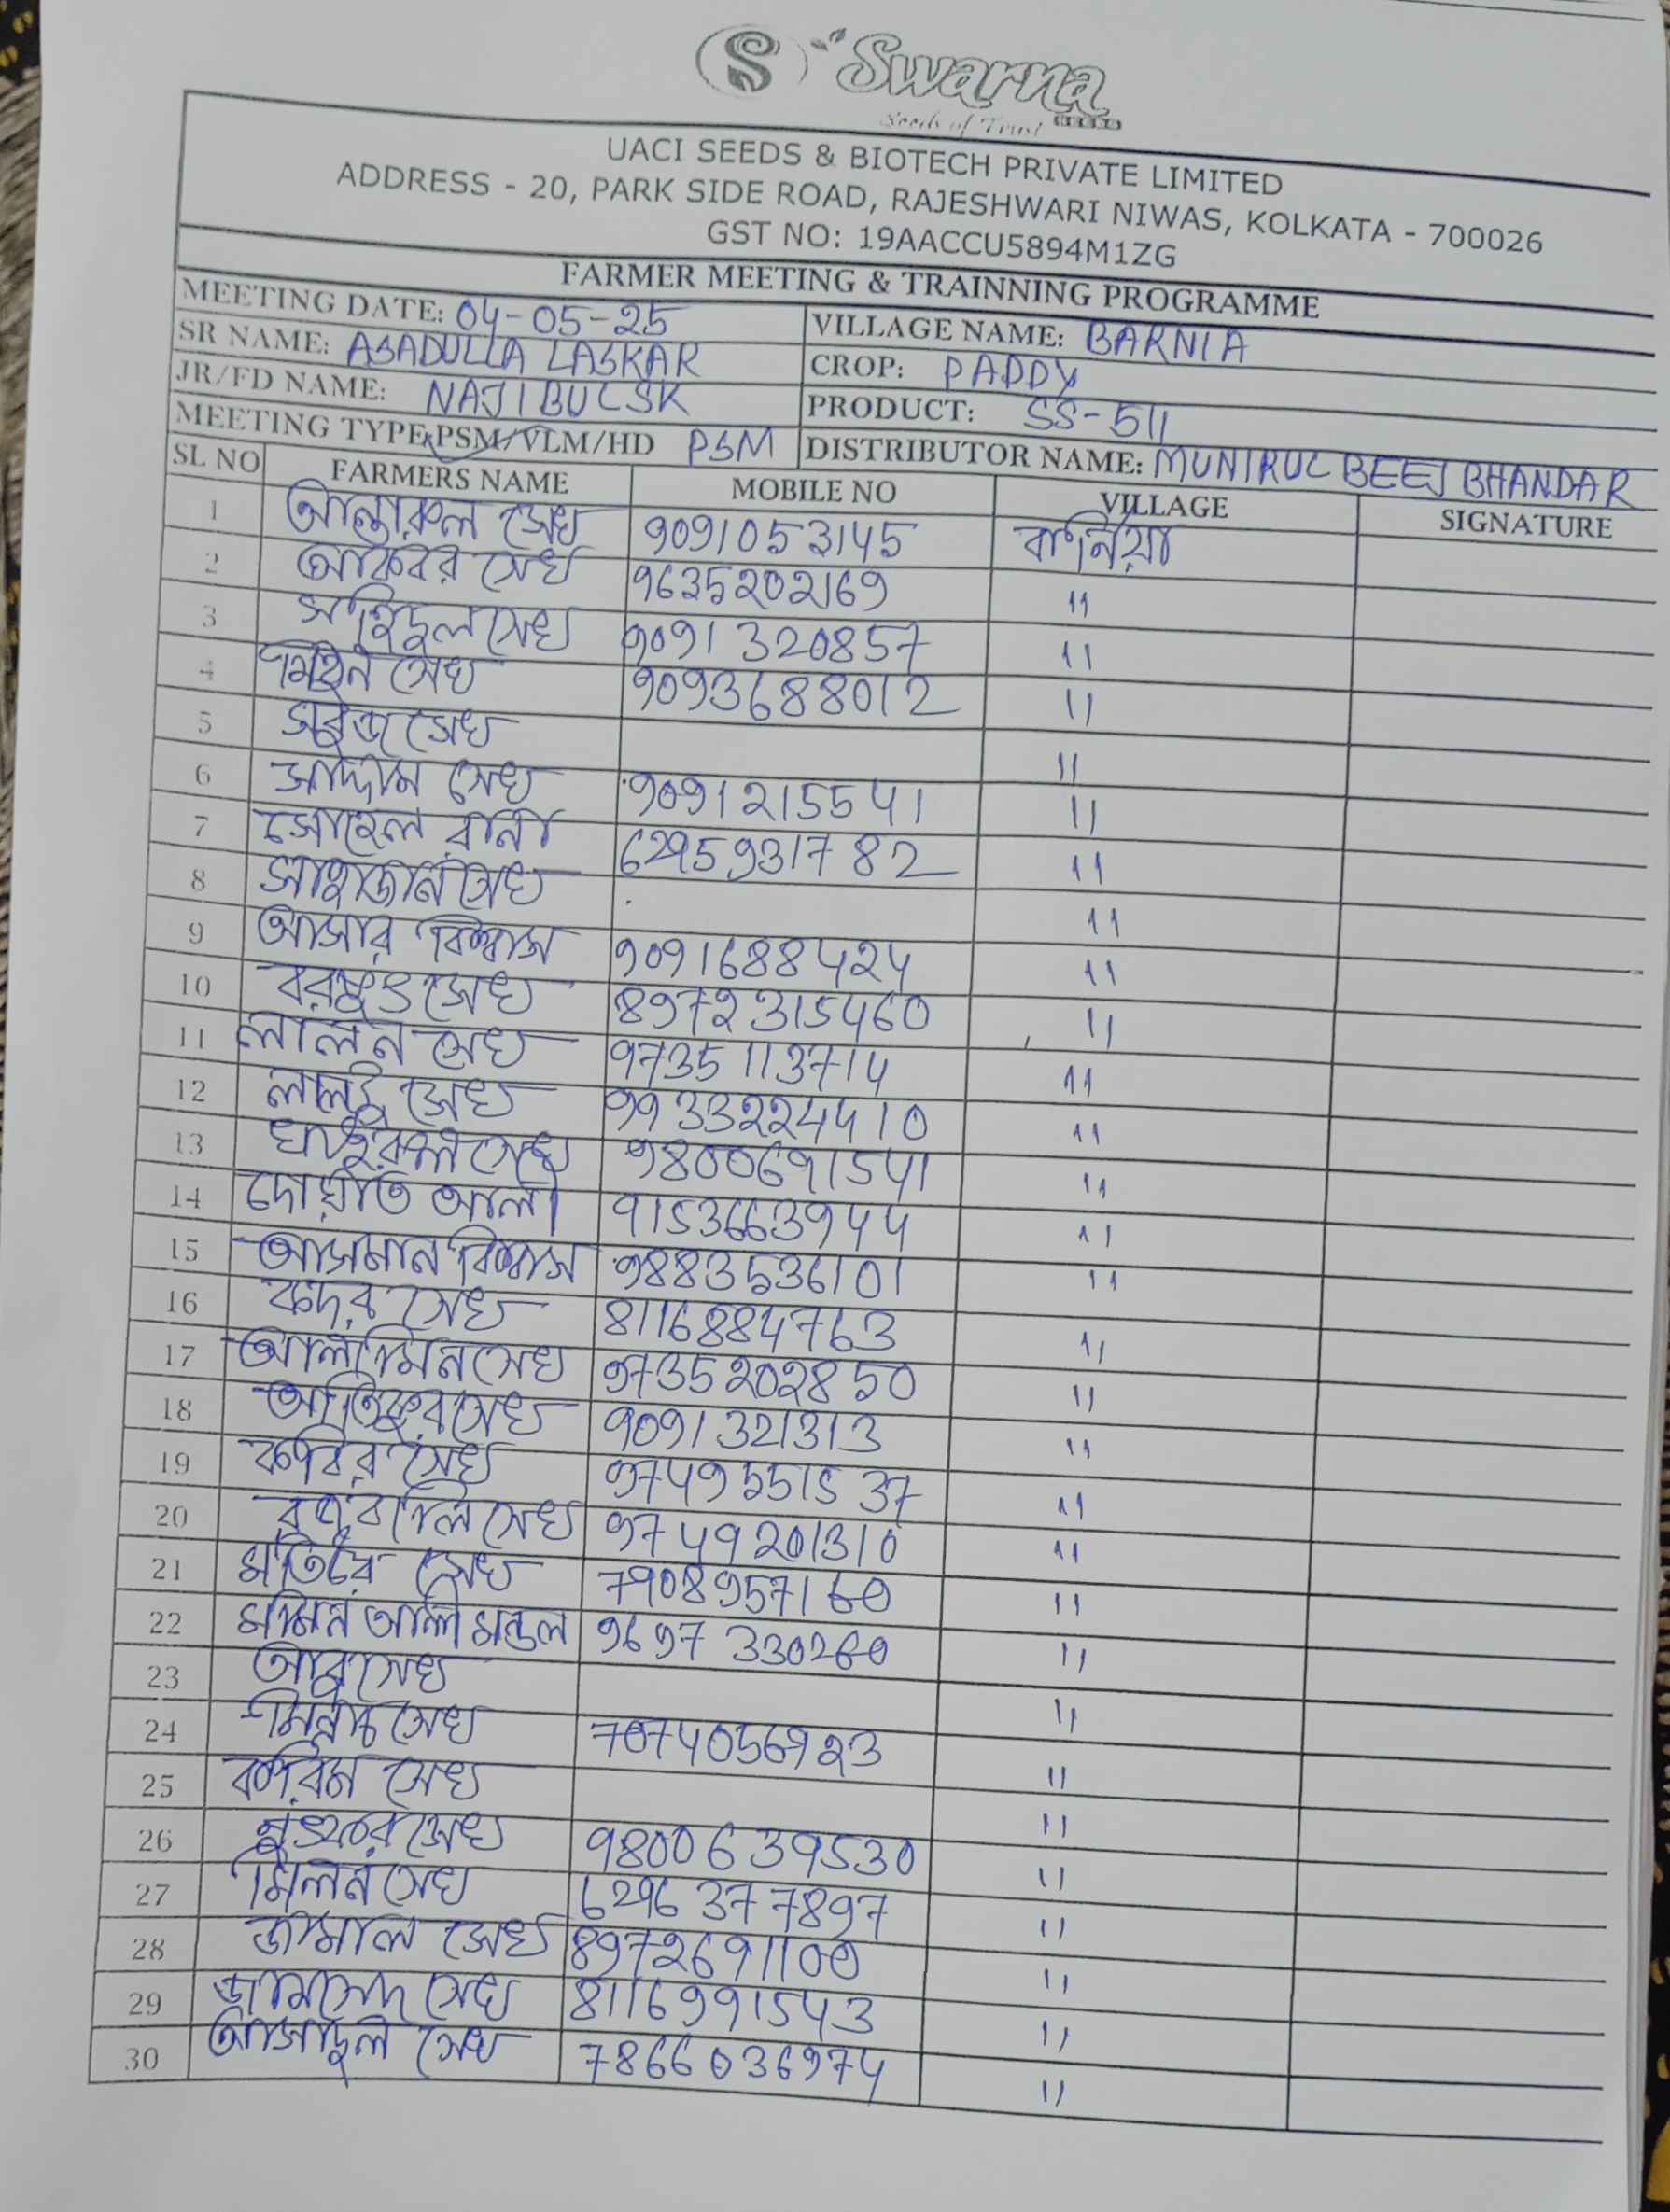 S Swarna
Seeds of Trust SEEDS
UACI SEEDS & BIOTECH PRIVATE LIMITED
ADDRESS - 20, PARK SIDE ROAD, RAJESHWARI NIWAS, KOLKATA - 700026
GST NO: 19AACCU5894M1ZG
FARMER MEETING & TRAINNING PROGRAMME
MEETING DATE: 04-05-25 VILLAGE NAME: BARNIA
SR NAME: ASADULLA LASKAR CROP: PADDY
JR/FD NAME: NAJIBUL SK PRODUCT: SS-511
MEETING TYPE PSM/VLM/HD PSM DISTRIBUTOR NAME: MUNIRUL BEEJ BHANDAR
SL NO FARMERS NAME MOBILE NO VILLAGE SIGNATURE
1 সেখ 9091053145 বার্নিয়া
2 আকবর সেখ 9635202169 11
3 সেখ 9091320857 11
4 সেখ 9093688012 11
5 সেখ 11
6 সাদ্দাম সেখ 9091215541 11
7 সোহেল রানা 6295931782 11
8 সাহাজান সেখ 11
9 আসার বিশ্বাস 9091688424 11
10 সেখ 8972315460 11
11 লালন সেখ 9735113714 11
12 লালটু সেখ 9933224410 11
13 সেখ 9800691541 11
14 আলী 9153663944 11
15 আসমান বিশ্বাস 9883536101 11
16 কদর সেখ 8116884763 11
17 আলামিন সেখ 9735202850 11
18 সেখ 9091321313 11
19 কবির সেখ 9749551537 11
20 সেখ 9749201310 11
21 সেখ 7908957160 11
22 মমিন আলি মন্ডল 9697330260 11
23 সেখ 11
24 সেখ 7074056923 11
25 করিম সেখ 11
26 সেখ 9800639530 11
27 মিলন সেখ 6296377897 11
28 জামাল সেখ 8972691100 11
29 জামসেদ সেখ 8116991543 11
30 আসাদুল সেখ 7866036974 11